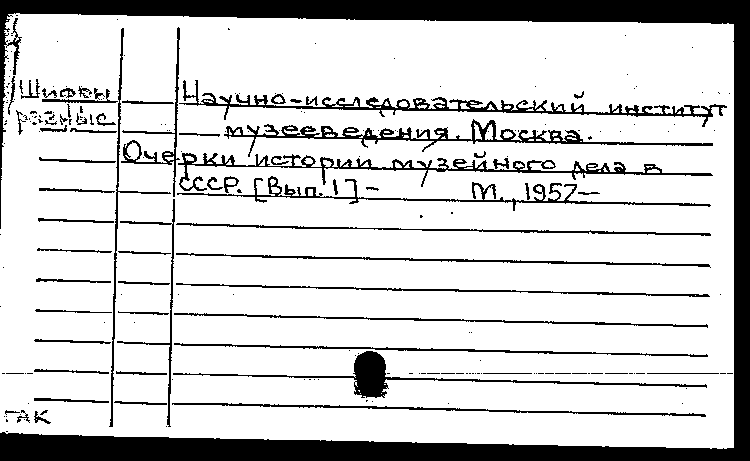 Шифры
разные
Научно-исследовательский институт
музееведения. Москва.
Очерки истории музейного дела в
СССР. [Вып. 1] – М., 1957–
ГАК